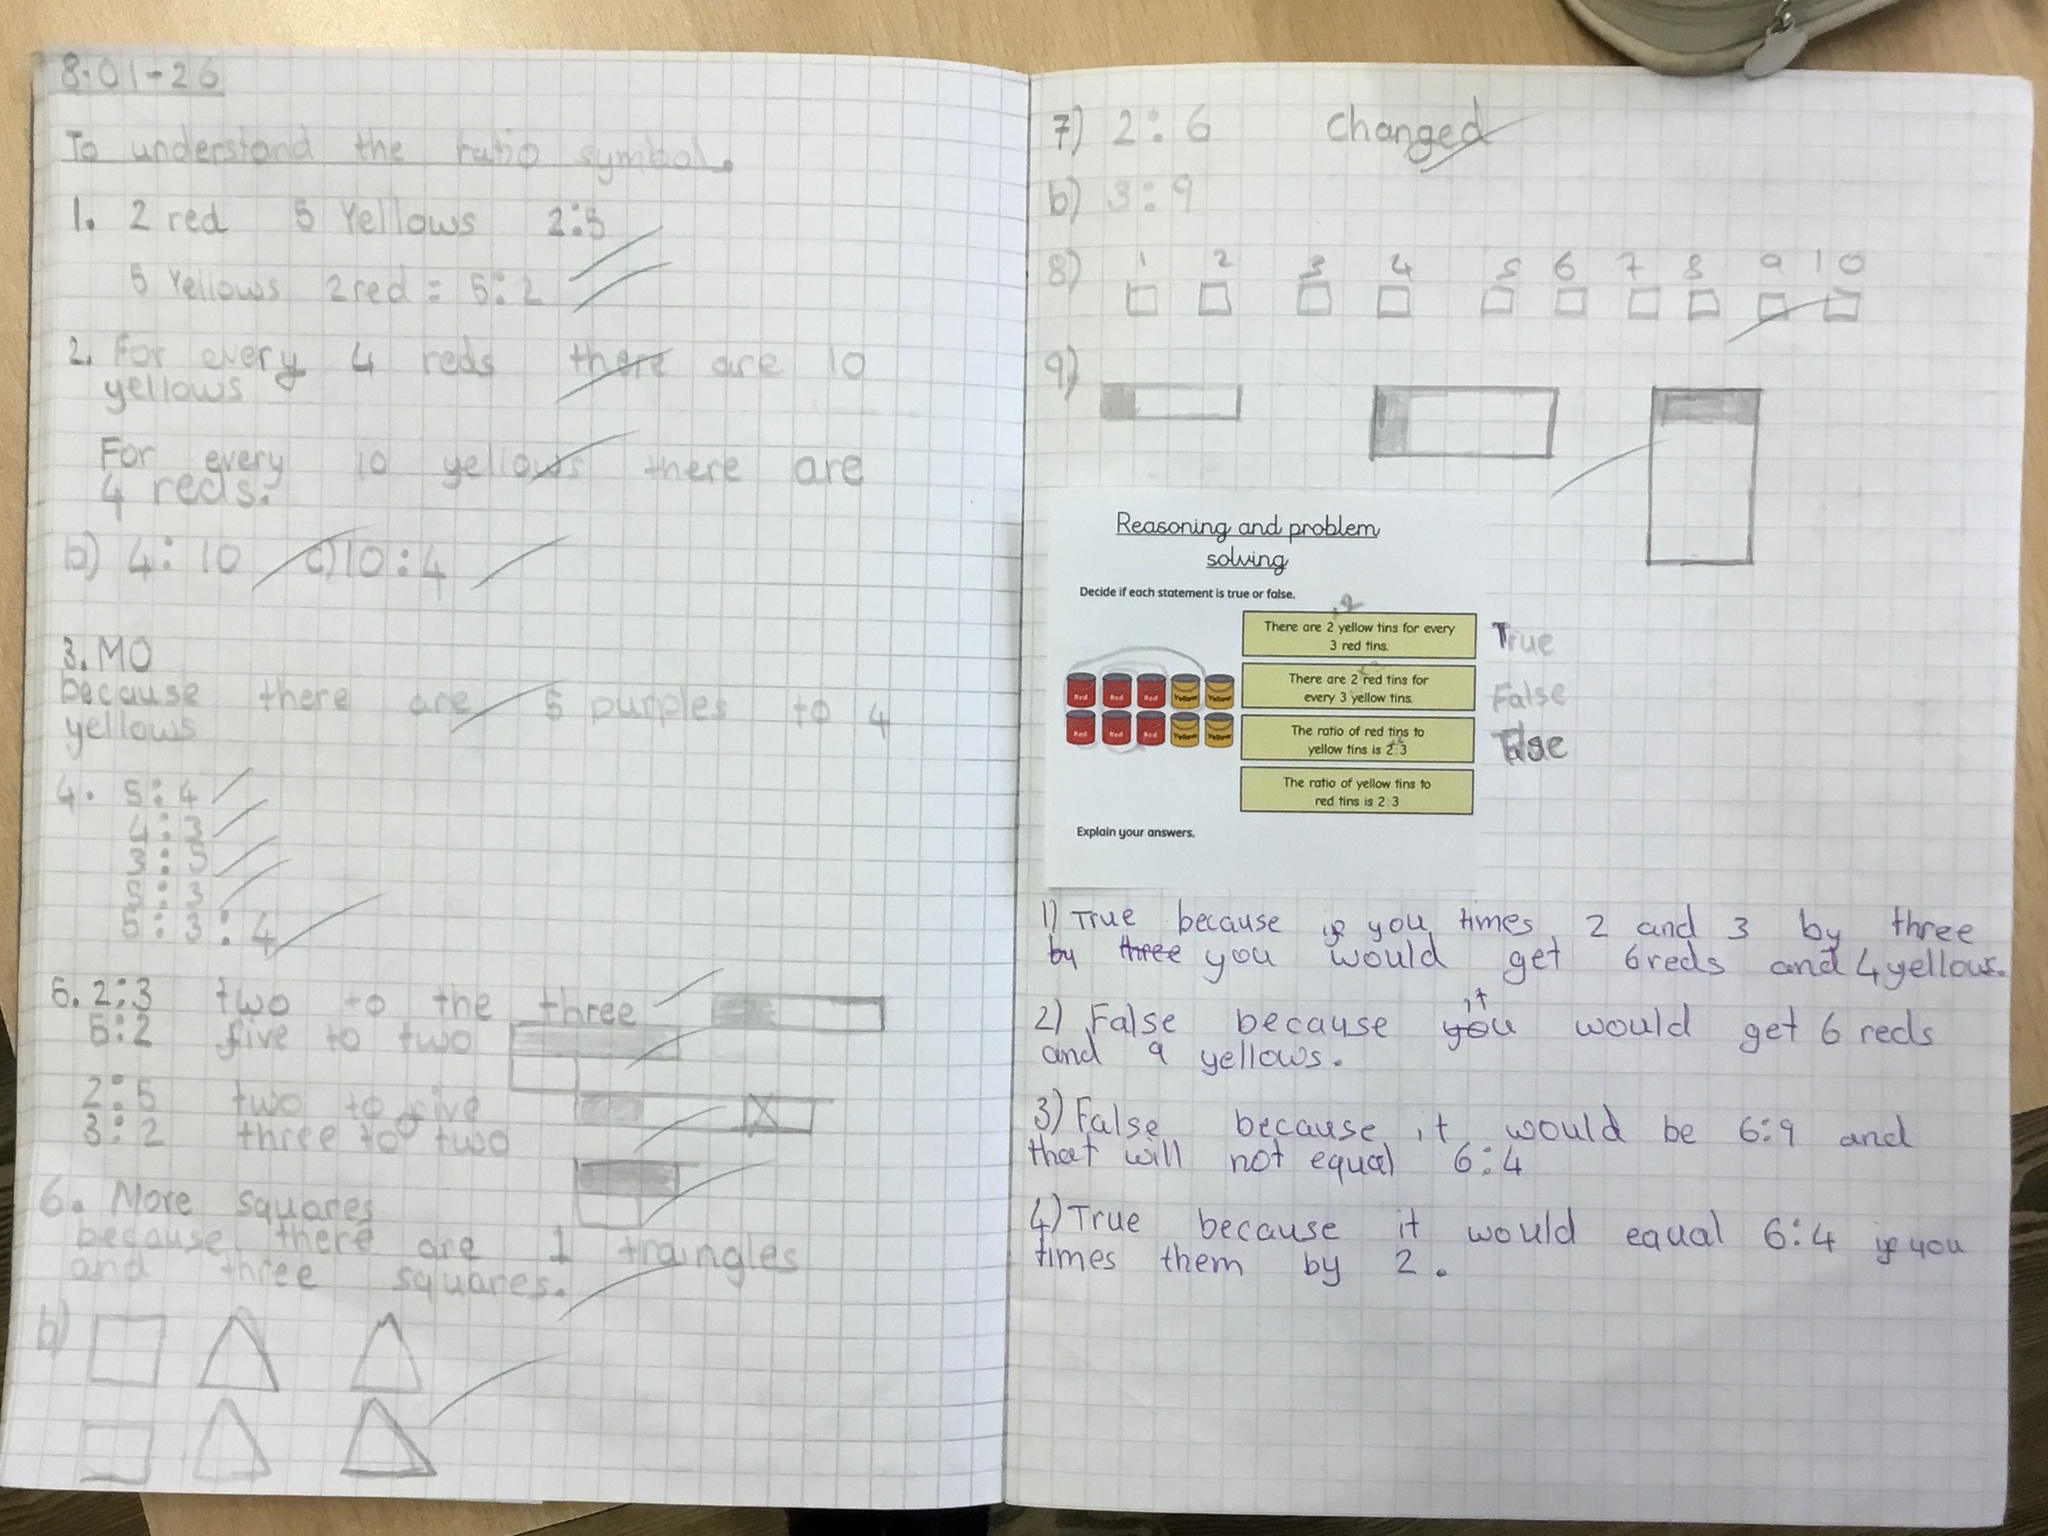 8.01-26
To understand the ratio symbol.
1. 2 red 5 Yellows 2:5
5 Yellows 2red = 5:2
2. For every 4 reds there are 10
yellows
For every 10 yellows there are
4 reds.
b) 4:10 c) 10:4
3. MO
because there are 5 purples to 4
yellows
4. 5:4
4:3
3:5
5:3
5:3:4
5. 2:3 two to the three
5:2 five to two
2:5 two to five
3:2 three to two
6. More squares
because there are 1 traingles
and three squares.
b)
7) 2:6 Changed
b) 3:9
8) 1 2 3 4 5 6 7 8 9 10
9)
Reasoning and problem
solving
Decide if each statement is true or false.
There are 2 yellow tins for every
3 red tins.
True
There are 2 red tins for
every 3 yellow tins.
False
The ratio of red tins to
yellow tins is 2:3
The ratio of yellow tins to
red tins is 2:3
Red Red Red Yellow Yellow
Red Red Red Yellow Yellow
Explain your answers.
1) True because if you times 2 and 3 by three
by three you would get 6reds and 4yellows.
2) False because you it would get 6 reds
and 9 yellows.
3) False because it would be 6:9 and
that will not equal 6:4
4) True because it would equal 6:4 if you
times them by 2.